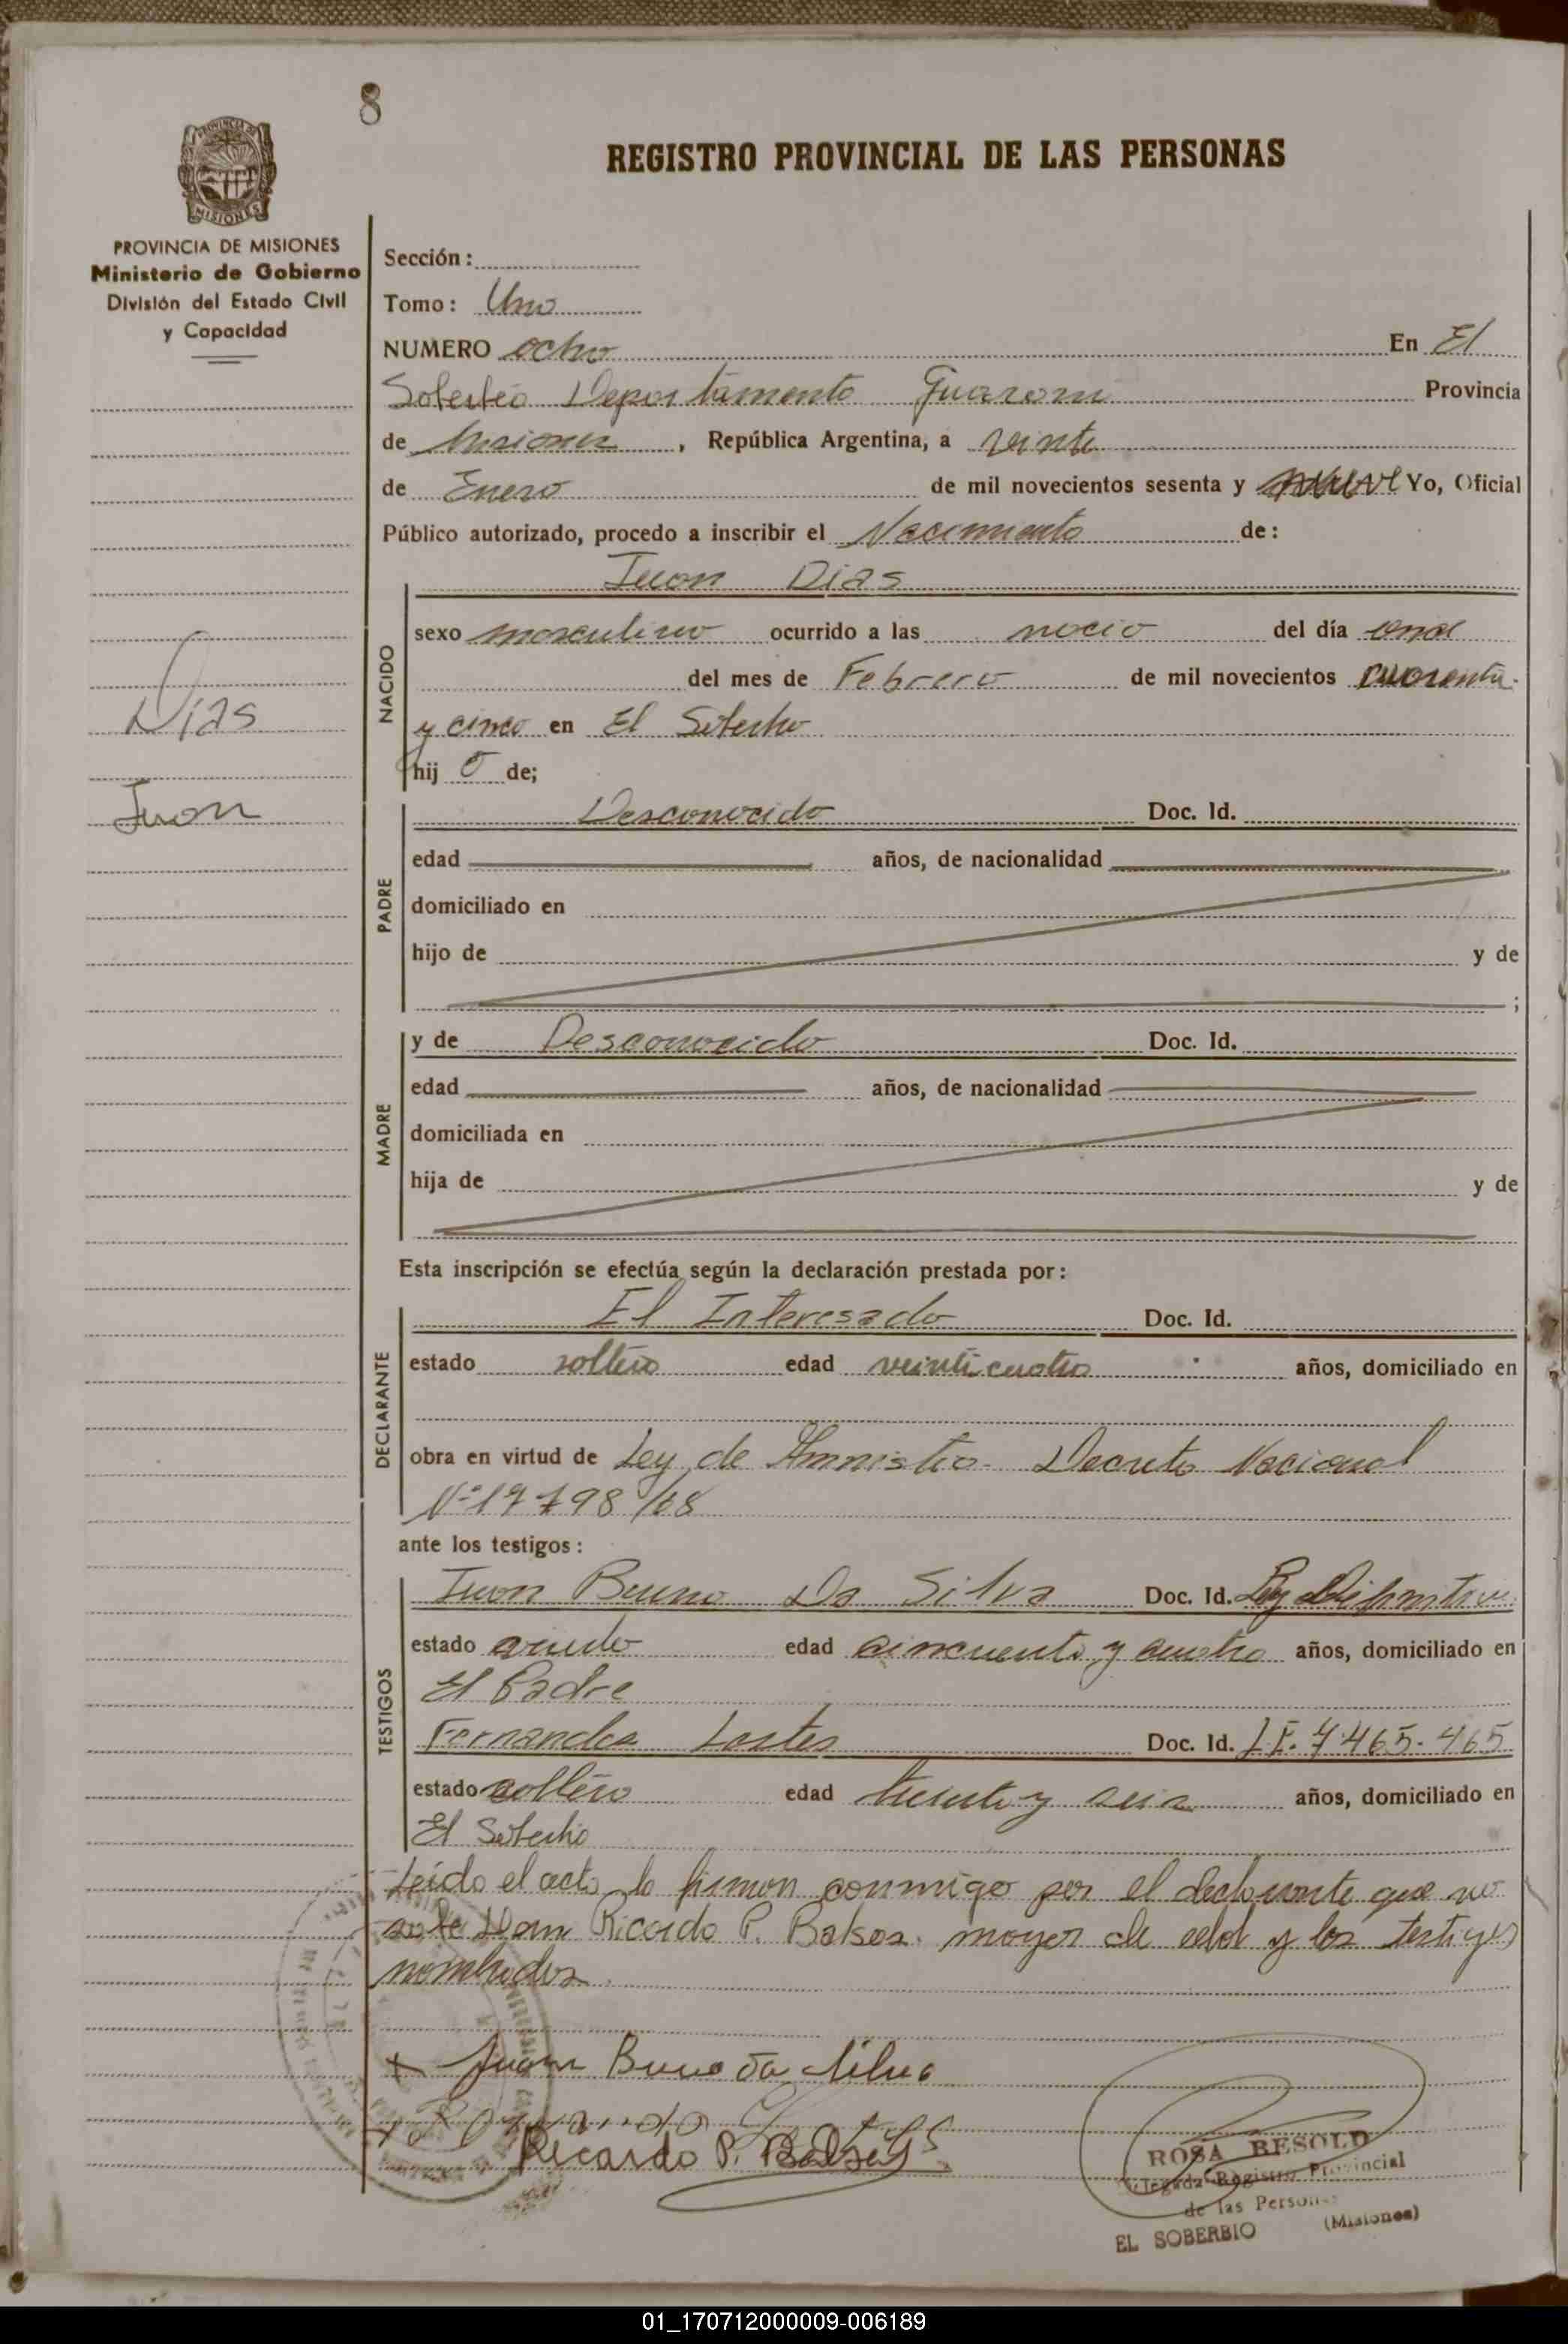 8
PROVINCIA DE MISIONES
REGISTRO PROVINCIAL DE LAS PERSONAS
PROVINCIA DE MISIONES
Ministerio de Gobierno
División del Estado Civil
y Capacidad
Sección:
Tomo: Uno
NUMERO ocho En El
Soberbio Departamento Guarani Provincia
de Misiones, República Argentina, a veinte
de Enero de mil novecientos sesenta y nueve Yo, Oficial
Público autorizado, procedo a inscribir el Nacimiento de:
Juan Dias
NACIDO
sexo masculino ocurrido a las del día
del mes de Febrero de mil novecientos cuarenta
y cinco en El Soberbio
hij o de;
Dias
Juan
PADRE
Desconocido Doc. Id.
edad años, de nacionalidad
domiciliado en
hijo de y de
;
MADRE
y de Desconocido Doc. Id.
edad años, de nacionalidad
domiciliada en
hija de y de
Esta inscripción se efectúa según la declaración prestada por:
DECLARANTE
El Interesado Doc. Id.
estado soltero edad veinticuatro años, domiciliado en
obra en virtud de Ley de Amnistia Decreto Nacional
Nº 17798/68
ante los testigos:
TESTIGOS
Juan Bueno Da Silva Doc. Id.
estado viudo edad cincuenta y cuatro años, domiciliado en
El Padre
Fernandes Lostes Doc. Id. L E. 7.465.465
estado soltero edad treinta y seis años, domiciliado en
El Soberbio
Leido el acta la firman conmigo por el declarante que no
sabe Don Ricardo P. Balsas mayor de edad y los testigos
nombrados.
Juan Bueno da Silva
Ricardo P.
ROSA BESOLD
Delegada Registro Provincial
de las Personas
EL SOBERBIO (Misiones)
01_170712000009-006189